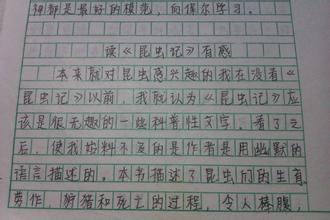 种都是最好的模范，向保尔学习。
读《昆虫记》有感
本来就对昆虫感兴趣的我在没看《
昆虫记》以前，我就认为《昆虫记》应
该是很无趣的一些科普性文字。看了之
后，使我始料不及的是作者是用幽默的
语言描述的。本书描述了昆虫们的生育
劳作，狩猎和死亡的过程，令人捧腹，